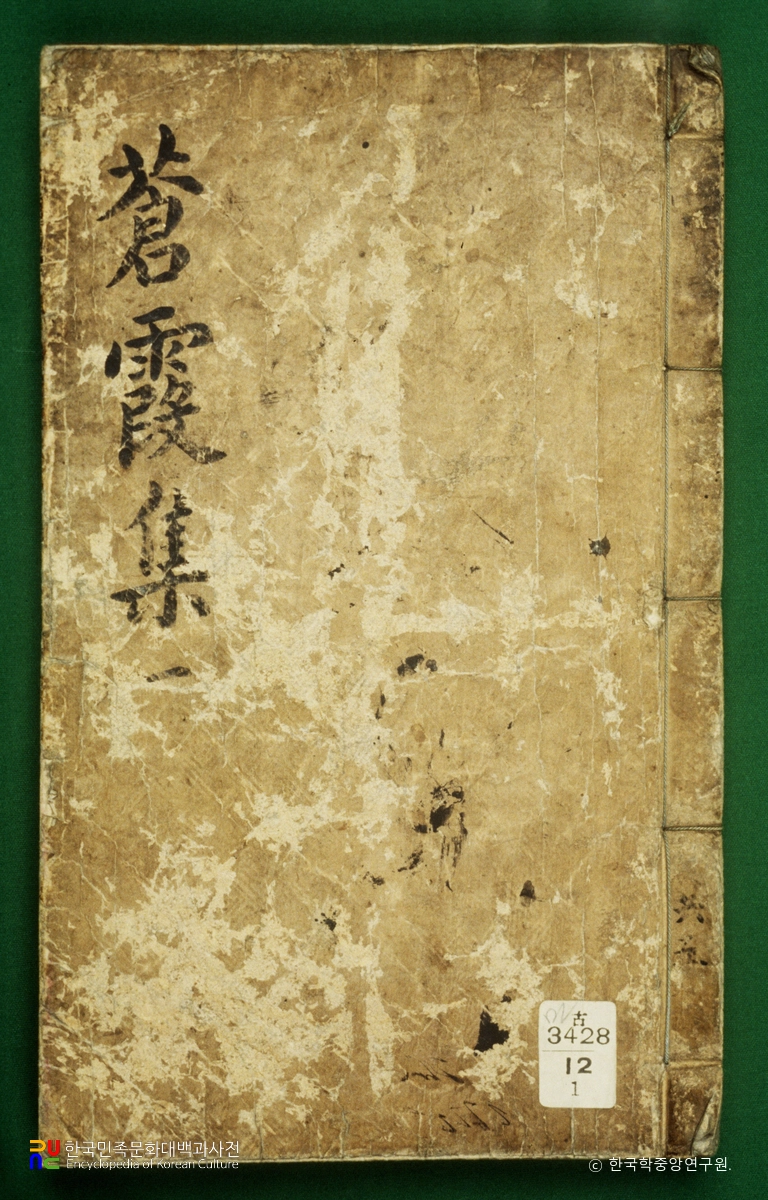 蒼霞集 一
共九
古
3428
12
1
한국민족문화대백과사전
Encyclopedia of Korean Culture
© 한국학중앙연구원.